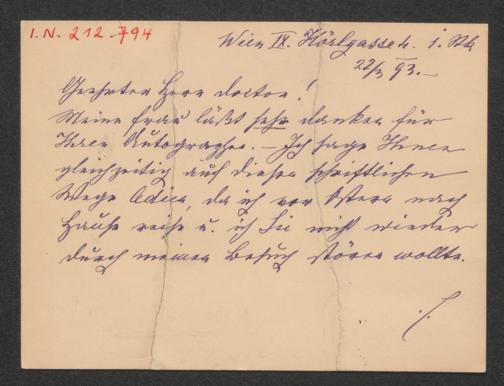 I.N. 212.794
Wien IX. Hörlgasse 4. 1. Stk
22/3 93.–
Geehrter Herr Doctor!
Meine Frau läßt sehr danken für
Ihren Autographen. – Ich sage Ihnen
gleichzeitig auf diesem schriftlichen
Wege Adieu, da ich vor Ostern nach
Hause reise u. ich Sie nicht wieder
durch meinen Besuch stören wollte.